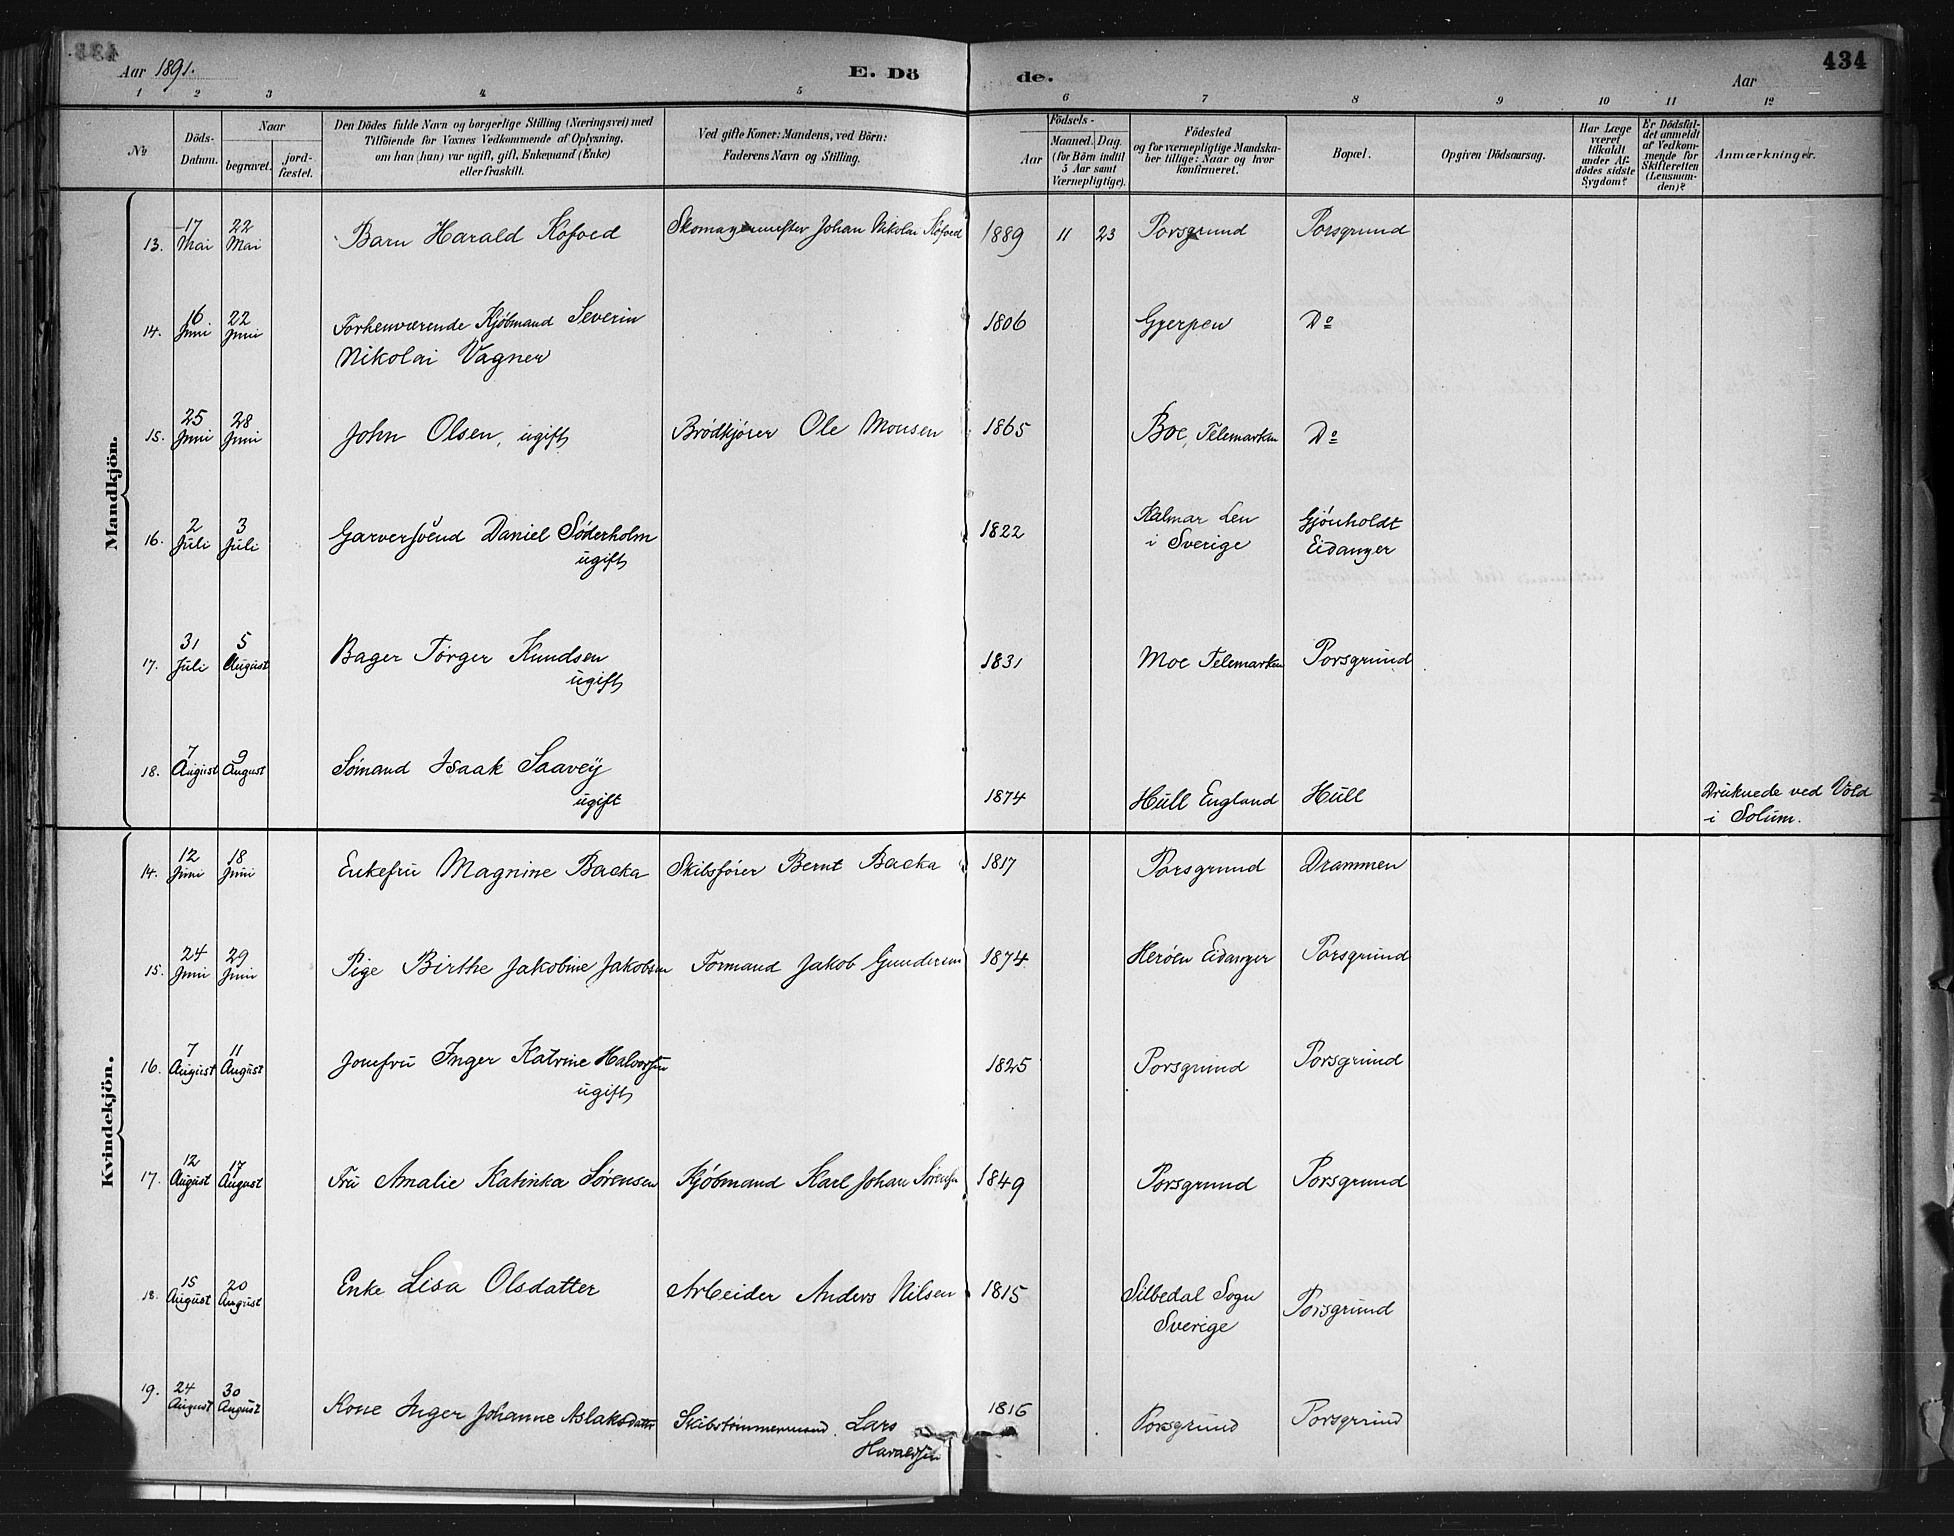 434
Aar 1891.
E. Dö
de.
Aar
1 2 3 4 5 6 7 8 9 10 11 12
No
Döds-Datum.
Naar
begravet.
jord-fæstet.
Den Dödes fulde Navn og borgerlige Stilling (Næringsvei) med
Tilföiende for Voxnes Vedkommende af Oplysning,
om han (hun) var ugift, gift, Enkemand (Enke)
eller fraskilt.
Ved gifte Koner: Mandens, ved Börn:
Faderens Navn og Stilling.
Födsels-
Aar
Maaned. Dag.
(for Börn indtil
5 Aar samt
Værnepligtige).
Födested
og for værnepligtige Mandska-
ber tillige: Naar og hvor
konfirmeret.
Bopæl.
Opgiven Dödsaarsag.
Har Læge
været
tilkaldt
under Af-
dödes sidste
Sygdom?
Er Dödsfal-
det anmeldt
af Vedkom-
mende for
Skifteretten
(Lensman-
den)?
Anmærkninger.
Mandkjön.
13. 17 Mai 22 Mai Barn Harald Kofoed Skomagermester Johan Nikolai Kofoed 1889 11 23 Porsgrund Porsgrund
14. 16 Juni 22 Juni Forhenværende Kjøbmand Severin 1806 Gjerpen Do
Nikolai Vagner
15. 25 Juni 28 Juni John Olsen, ugift Brødkjører Ole Monsen 1865 Boe, Telemarken Do
16. 2 Juli 3 Juli Garversvend Daniel Søderholm 1822 Kalmar Len Gjønholdt
ugift i Sverige Eidanger
17. 31 Juli 5 August Bager Torger Knudsen 1831 Moe Telemarken Porsgrund
ugift
18. 7 August 9 August Sømand Isaak Saavey
ugift 1874 Hull England Hull Druknede ved Vold
i Solum.
Kvindekjön.
14. 12 Juni 18 Juni Enkefru Magnine Backa Skibsfører Bernt Backa 1817 Porsgrund Drammen
15. 24 Juni 29 Juni Pige Birthe Jakobine Jakobsen Formand Jakob Gundersen 1874 Herøen Eidanger Porsgrund
16. 7 August 11 August Jomfru Inger Katrine Halvorsen 1825 Porsgrund Porsgrund
ugift
17. 12 August 17 August Fru Amalie Katinka Sørensen Kjøbmand Karl Johan Sørensen 1849 Porsgrund Porsgrund
18. 15 August 20 August Enke Lisa Olsdatter Arbeider Anders Nilsen 1815 Silbedal Sogn Porsgrund
Sverige
19. 24 August 30 August Kone Inger Johanne Aslaksdatter Skibstømmermand Lars 1816 Porsgrund Porsgrund
Haraldsen